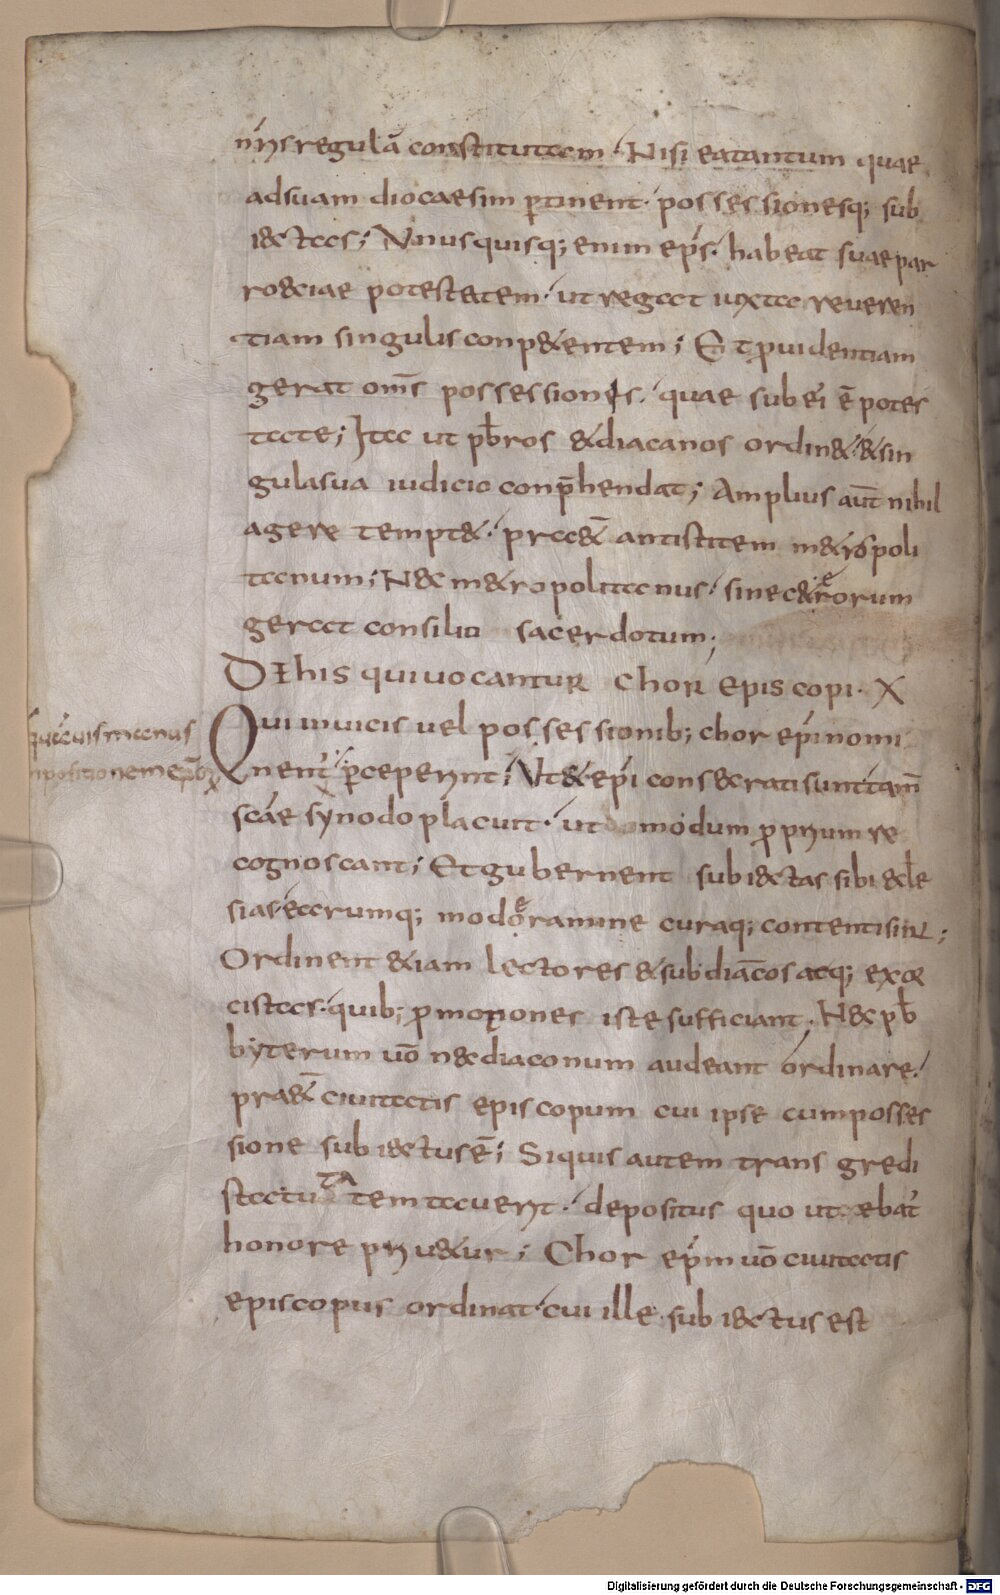 nr̄is regulā constitutam · Nisi ea tantum quae
ad suam diocaesim ꝑtinent · possessionesq; sub
iectas; Vnusquisq; enim ep̄s · habeat suae par
roeciae potestatem · ut regat iuxta reveren
tiam singulis conpetentem; Et ꝓuidentiam
gerat om̄s possessionis · quae sub ei ē potes
tate; Ita ut pb̄ros & diacanos ordin& · & sin
gula sua iudicio conp̄hendat; Amplius aut̄ nihil
agere tempt& · praet̄ antistitem m&ropoli
tanum; Nec m&ropolitanus · sine c&erorum
gerat consilio sacerdotum;
De his qui vocantur Chor episcopi · X
Qui in vicis vel possessionib; chor ep̄i nomi
nent̄
quāuis manus
inpositionem ep̄orū
perceperint; Vt & ep̄i consecrati sunt tam̄
scāe synodo placuit · ut modum ꝓprium re
cognoscant; Et gubernent subiectas sibi eccle
sias · earumq; moderamine curaq; contenti sint;
Ordinent &iam lectores & subdiac̄os atq; exor
cistas · quib; ꝓmotiones iste sufficiant; Nec pb̄
byterum uō nec diaconum audeant ordinare ·
praet̄ civitatis episcopum cui ipse cum posses
sione subiectus ē; Si quis autem transgredi
statuta temtauerit · depositus quo utebat̄
honore priv&ur; Chor ep̄m uō civitatis
episcopus ordinat · cui ille subiectus est
Digitalisierung gefördert durch die Deutsche Forschungsgemeinschaft - DFG